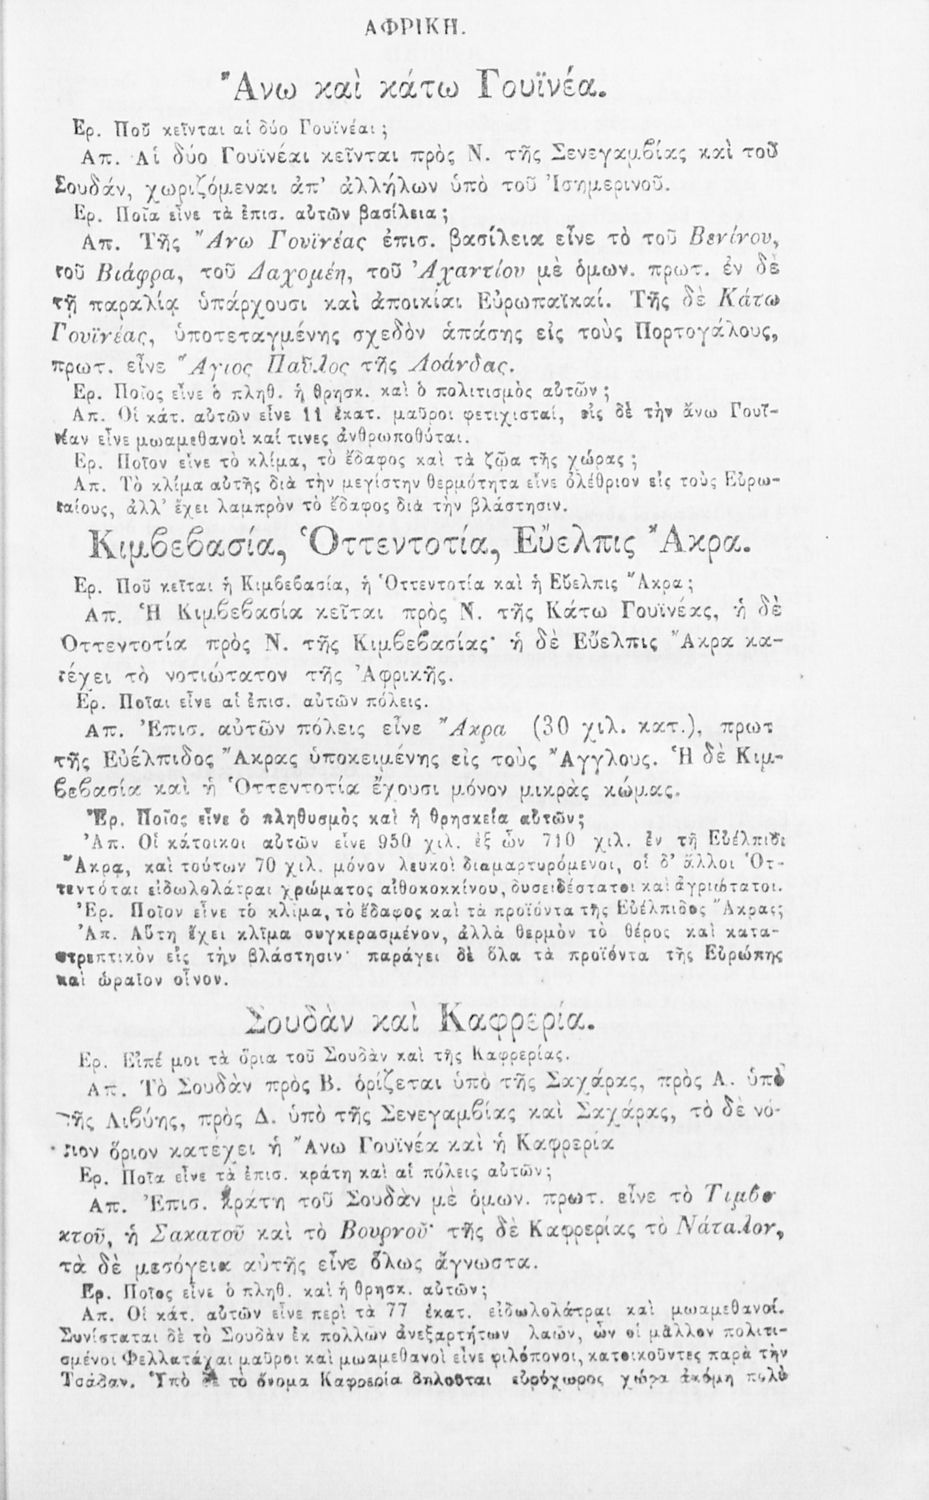 ΑΦΡΙΚΗ.
Ἄνω καὶ κάτω Γουϊνέα.
Ἐρ. Ποῦ κεῖνται αἱ δύο Γουϊνέαι;
Ἀπ. Αἱ δύο Γουϊνέαι κεῖνται πρὸς Ν. τῆς Σενεγαμβίας καὶ τοῦ
Σουδάν, χωριζόμεναι ἀπ' ἀλλήλων ὑπὸ τοῦ Ἰσημερινοῦ.
Ἐρ. Ποῖα εἶνε τὰ ἐπισ. αὐτῶν βασίλεια;
Ἀπ. Τῆς Ἄνω Γουϊνέας ἐπισ. βασίλεια εἶνε τὸ τοῦ Βενίνου,
τοῦ Βιάφρα, τοῦ Δαχομέη, τοῦ Ἀχαντίου μὲ ὁμων. πρωτ. ἐν δὲ
τῇ παραλίᾳ ὑπάρχουσι καὶ ἀποικίαι Εὐρωπαϊκαί. Τῆς δὲ Κάτω
Γουϊνέας, ὑποτεταγμένης σχεδὸν ἁπάσης εἰς τοὺς Πορτογάλους,
πρωτ. εἶνε Ἅγιος Παῦλος τῆς Λοάνδας.
Ἐρ. Ποῖος εἶνε ὁ πληθ. ἡ θρησκ. καὶ ὁ πολιτισμὸς αὐτῶν;
Ἀπ. Οἱ κάτ. αὐτῶν εἶνε 11 ἑκατ. μαῦροι φετιχισταί, εἰς δὲ τὴν ἄνω Γουϊ-
νέαν εἶνε μωαμεθανοὶ καί τινες ἀνθρωποθύται.
Ἐρ. Ποῖον εἶνε τὸ κλίμα, τὸ ἔδαφος καὶ τὰ ζῶα τῆς χώρας;
Ἀπ. Τὸ κλίμα αὐτῆς διὰ τὴν μεγίστην θερμότητα εἶνε ὀλέθριον εἰς τοὺς Εὐρω-
παίους, ἀλλ' ἔχει λαμπρὸν τὸ ἔδαφος διὰ τὴν βλάστησιν.
Κιμβεβασία, Ὀττεντοτία, Εὔελπις Ἄκρα.
Ἐρ. Ποῦ κεῖται ἡ Κιμβεβασία, ἡ Ὀττεντοτία καὶ ἡ Εὔελπις Ἄκρα;
Ἀπ. Ἡ Κιμβεβασία κεῖται πρὸς Ν. τῆς Κάτω Γουϊνέας, ἡ δὲ
Ὀττεντοτία πρὸς Ν. τῆς Κιμβεβασίας· ἡ δὲ Εὔελπις Ἄκρα κα-
τέχει τὸ νοτιώτατον τῆς Ἀφρικῆς.
Ἐρ. Ποῖαι εἶνε αἱ ἐπισ. αὐτῶν πόλεις.
Ἀπ. Ἐπισ. αὐτῶν πόλεις εἶνε Ἄκρα (30 χιλ. κατ.), πρωτ
τῆς Εὐέλπιδος Ἄκρας ὑποκειμένης εἰς τοὺς Ἄγγλους. Ἡ δὲ Κιμ-
βεβασία καὶ ἡ Ὀττεντοτία ἔχουσι μόνον μικρὰς κώμας.
Ἐρ. Ποῖος εἶνε ὁ πληθυσμὸς καὶ ἡ θρησκεία αὐτῶν;
Ἀπ. Οἱ κάτοικοι αὐτῶν εἶνε 950 χιλ. ἐξ ὧν 710 χιλ. ἐν τῇ Εὐέλπιδι
Ἄκρᾳ, καὶ τούτων 70 χιλ. μόνον λευκοὶ διαμαρτυρόμενοι, οἱ δ' ἄλλοι Ὀτ-
τεντόται εἰδωλολάτραι χρώματος αἰθοκοκκίνου, δυσειδέστατοι καὶ ἀγριώτατοι.
Ἐρ. Ποῖον εἶνε τὸ κλῖμα, τὸ ἔδαφος καὶ τὰ προϊόντα τῆς Εὐέλπιδος Ἄκρας;
Ἀπ. Αὕτη ἔχει κλῖμα συγκερασμένον, ἀλλὰ θερμὸν τὸ θέρος καὶ κατα-
στρεπτικὸν εἰς τὴν βλάστησιν· παράγει δὲ ὅλα τὰ προϊόντα τῆς Εὐρώπης
καὶ ὡραῖον οἶνον.
Σουδὰν καὶ Καφρερία.
Ἐρ. Εἰπέ μοι τὰ ὅρια τοῦ Σουδὰν καὶ τῆς Καφρερίας.
Ἀπ. Τὸ Σουδὰν πρὸς Β. ὁρίζεται ὑπὸ τῆς Σαχάρας, πρὸς Α. ὑπὸ
τῆς Λιβύης, πρὸς Δ. ὑπὸ τῆς Σενεγαμβίας καὶ Σαχάρας, τὸ δὲ νό-
τιον ὅριον κατέχει ἡ Ἄνω Γουϊνέα καὶ ἡ Καφρερία
Ἐρ. Ποῖα εἶνε τὰ ἐπισ. κράτη καὶ αἱ πόλεις αὐτῶν;
Ἀπ. Ἐπισ. κράτη τοῦ Σουδὰν μὲ ὁμων. πρωτ. εἶνε τὸ Τιμβο
κτοῦ, ἡ Σακατοῦ καὶ τὸ Βουρνοῦ· τῆς δὲ Καφρερίας τὸ Νάταλον,
τὰ δὲ μεσόγεια αὐτῆς εἶνε ὅλως ἄγνωστα.
Ἐρ. Ποῖος εἶνε ὁ πληθ. καὶ ἡ θρησκ. αὐτῶν;
Ἀπ. Οἱ κάτ. αὐτῶν εἶνε περὶ τὰ 77 ἑκατ. εἰδωλολάτραι καὶ μωαμεθανοί.
Συνίσταται δὲ τὸ Σουδὰν ἐκ πολλῶν ἀνεξαρτήτων λαῶν, ὧν οἱ μᾶλλον πολιτι-
σμένοι Φελλατάχαι μαῦροι καὶ μωαμεθανοὶ εἶνε φιλόπονοι, κατοικοῦντες παρὰ τὴν
Τσάδαν. Ὑπὸ δὲ τὸ ὄνομα Καφρερία δηλοῦται εὐρύχωρος χώρα ἀκόμη πολὺ